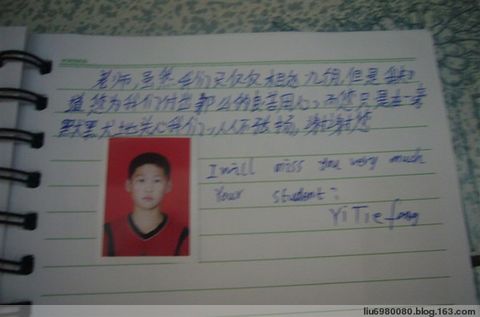 老师,虽然我们只仅仅相处九,但是我知
道您为我们付出那么的良苦用心,而您只是在一旁
默默地关心我们,从不张扬,谢谢您
I will miss you very much
Your student:
Yi Tie feng
liu6980080.blog.163.com